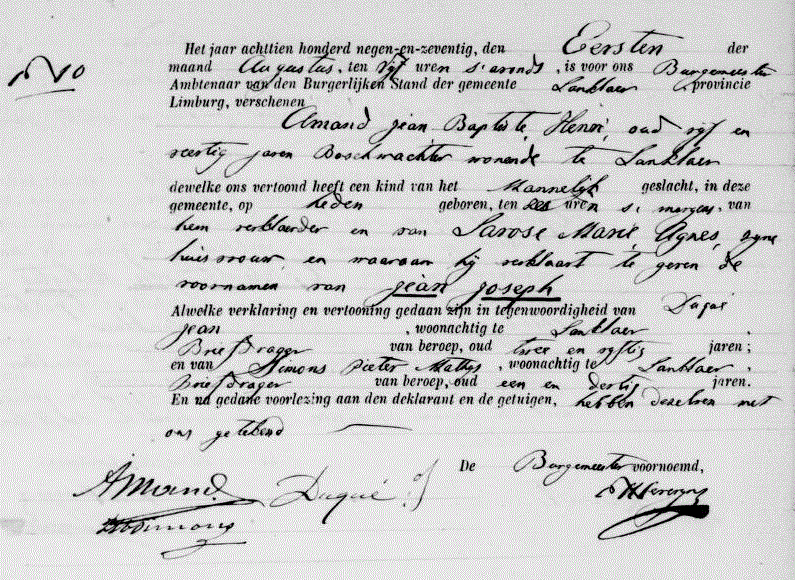 No
Het jaar achttien honderd negen-en-zeventig, den Eersten der
maand Augustus, ten vyf uren s'avonds, is voor ons Burgemeester
Ambtenaar van den Burgerlijken Stand der gemeente Lanklaer, provincie
Limburg, verschenen
Amand jean Baptiste Henri, oud vyf en
veertig jaren Boschwachter wonende te Lanklaer
dewelke ons vertoond heeft een kind van het Mannelyk geslacht, in deze
gemeente, op heden geboren, ten zes uren s'morgens, van
hem verklaerder en van Larose Marie Agnes, zyne
huisvrouw, en waaraan hij verklaart te geven de
voornamen van jean joseph
Alwelke verklaring en vertooning gedaan zijn in tegenwoordigheid van Duqué
jean, woonachtig te Lanklaer,
Briefdrager van beroep, oud twee en vyftig jaren;
en van Simons pieter Mathys, woonachtig te Lanklaer,
Briefdrager van beroep, oud een en dertig jaren.
En na gedane voorlezing aan den deklarant en de getuigen, hebben dezelven met
ons getekend
De Burgemeester voornoemd,
Amand Duqué. j
Simons